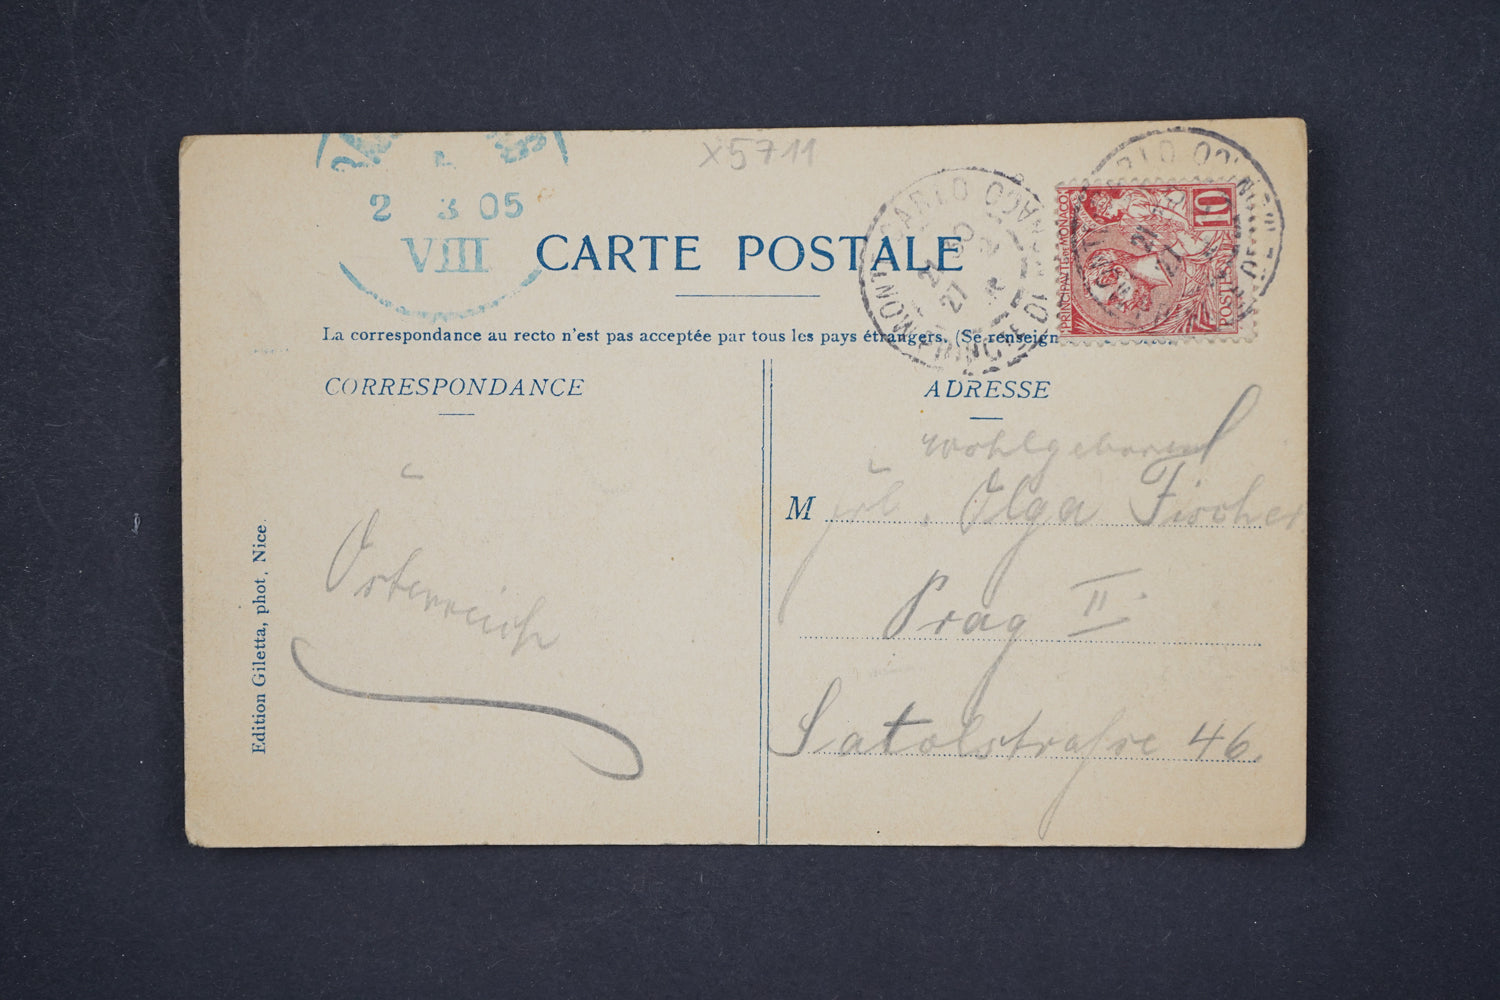 X5711
2 3 05
VIII
CARTE POSTALE
La correspondance au recto n'est pas acceptée par tous les pays étrangers. (Se renseign
CORRESPONDANCE
ADRESSE
Wohlgeboren
M Frl. Olga Fischer
Prag II.
Satolstraße 46.
Österreich
Edition Giletta, phot, Nice.
MONTE CARLO
PRINCIPAUTÉ DE MONACO
10
POSTES